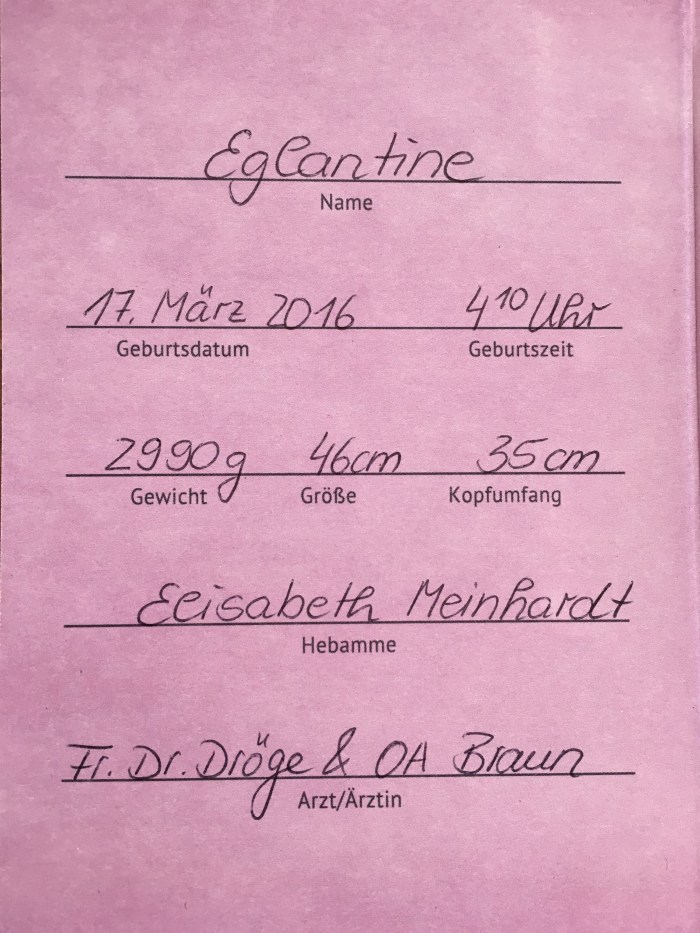 Eglantine
Name
17. März 2016 4¹⁰ Uhr
Geburtsdatum Geburtszeit
2990g 46cm 35cm
Gewicht Größe Kopfumfang
Elisabeth Meinhardt
Hebamme
Fr. Dr. Dröge & OA Braun
Arzt/Ärztin